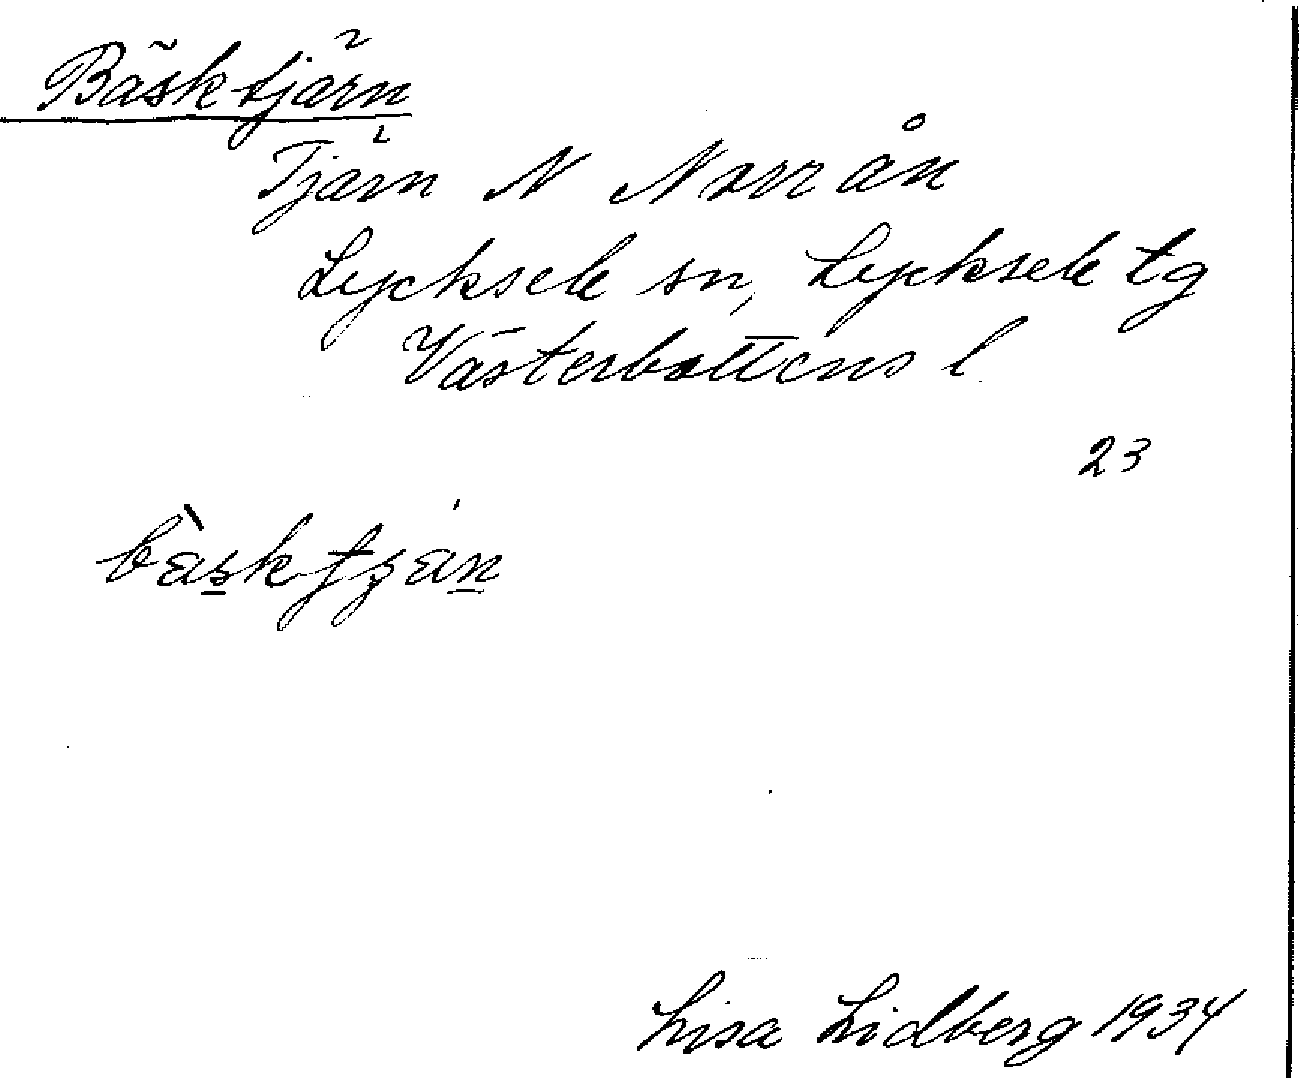 Bäsktjärn
Tjärn N Norrån
Lycksele sn, Lycksele tg
Västerbottens l
23
Lisa Lidberg 1934